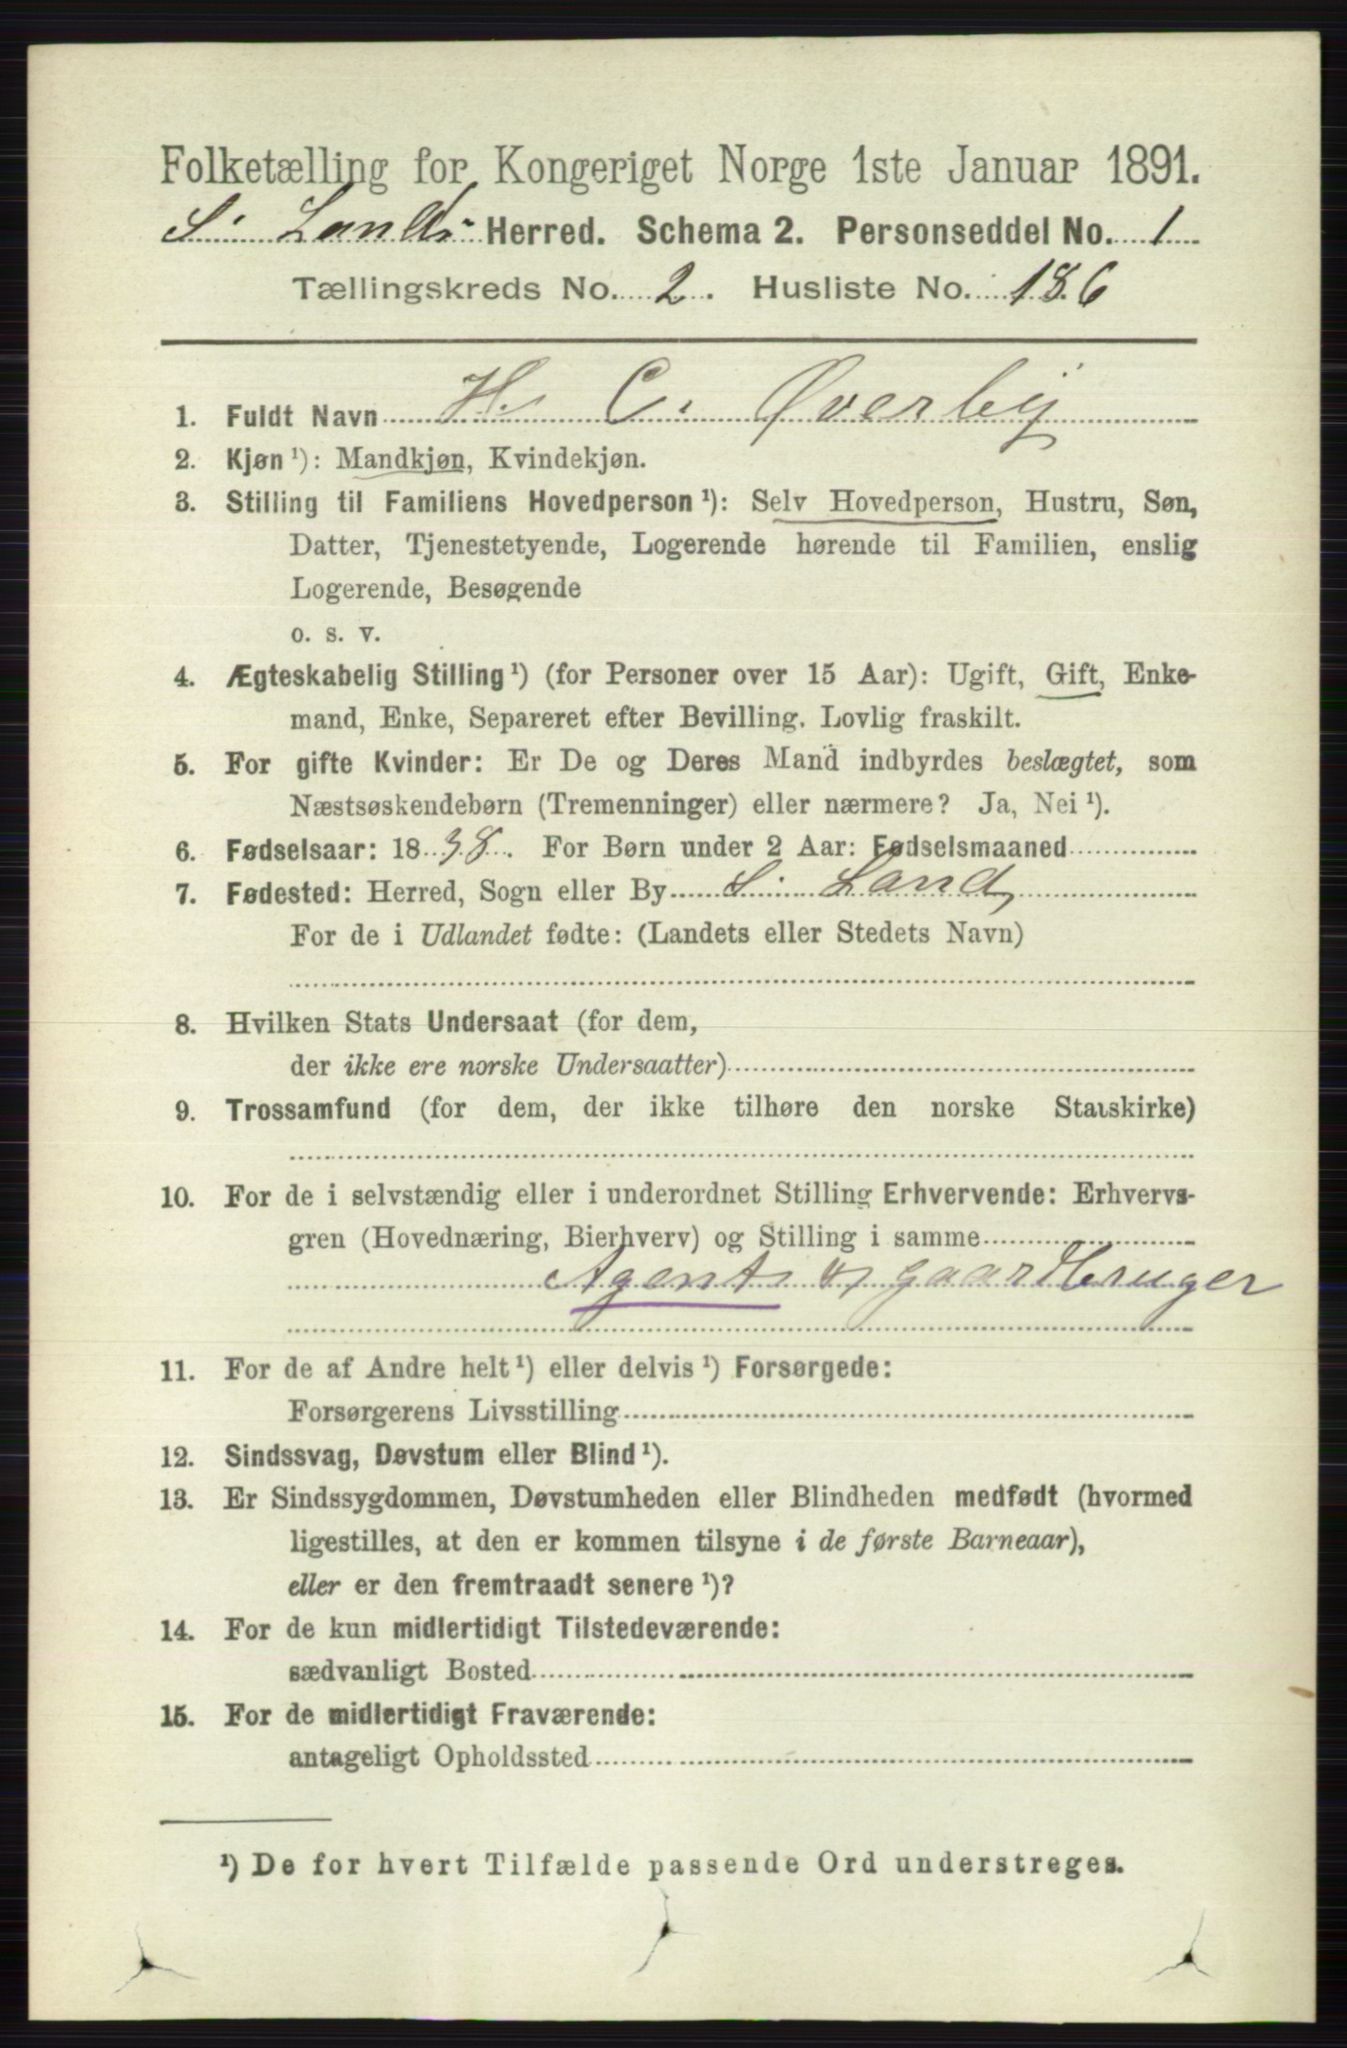 Folketælling for Kongeriget Norge 1ste Januar 1891.
S. Lands Herred. Schema 2. Personseddel No. 1
Tællingskreds No. 2. Husliste No. 186
1. Fuldt Navn H. C. Øverby
2. Kjøn ¹): Mandkjøn, Kvindekjøn.
3. Stilling til Familiens Hovedperson ¹): Selv Hovedperson, Hustru, Søn,
Datter, Tjenestetyende, Logerende hørende til Familien, enslig
Logerende, Besøgende
o. s. v.
4. Ægteskabelig Stilling ¹) (for Personer over 15 Aar): Ugift, Gift, Enke-
mand, Enke, Separeret efter Bevilling. Lovlig fraskilt.
5. For gifte Kvinder: Er De og Deres Mand indbyrdes beslægtet, som
Næstsøskendebørn (Tremenninger) eller nærmere? Ja, Nei ¹).
6. Fødselsaar: 1838. For Børn under 2 Aar: Fødselsmaaned
7. Fødested: Herred, Sogn eller By S. Land
For de i Udlandet fødte: (Landets eller Stedets Navn)
8. Hvilken Stats Undersaat (for dem,
der ikke ere norske Undersaatter)
9. Trossamfund (for dem, der ikke tilhøre den norske Statskirke)
10. For de i selvstændig eller i underordnet Stilling Erhvervende: Erhvervs-
gren (Hovednæring, Bierhverv) og Stilling i samme
Agent og gaardbruger
11. For de af Andre helt ¹) eller delvis ¹) Forsørgede:
Forsørgerens Livsstilling
12. Sindssvag, Døvstum eller Blind ¹).
13. Er Sindssygdommen, Døvstumheden eller Blindheden medfødt (hvormed
ligestilles, at den er kommen tilsyne i de første Barneaar),
eller er den fremtraadt senere ¹)?
14. For de kun midlertidigt Tilstedeværende:
sædvanligt Bosted
15. For de midlertidigt Fraværende:
antageligt Opholdssted
¹) De for hvert Tilfælde passende Ord understreges.